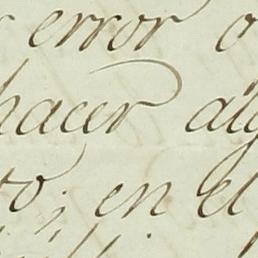 error o
hacer alg
to; en el